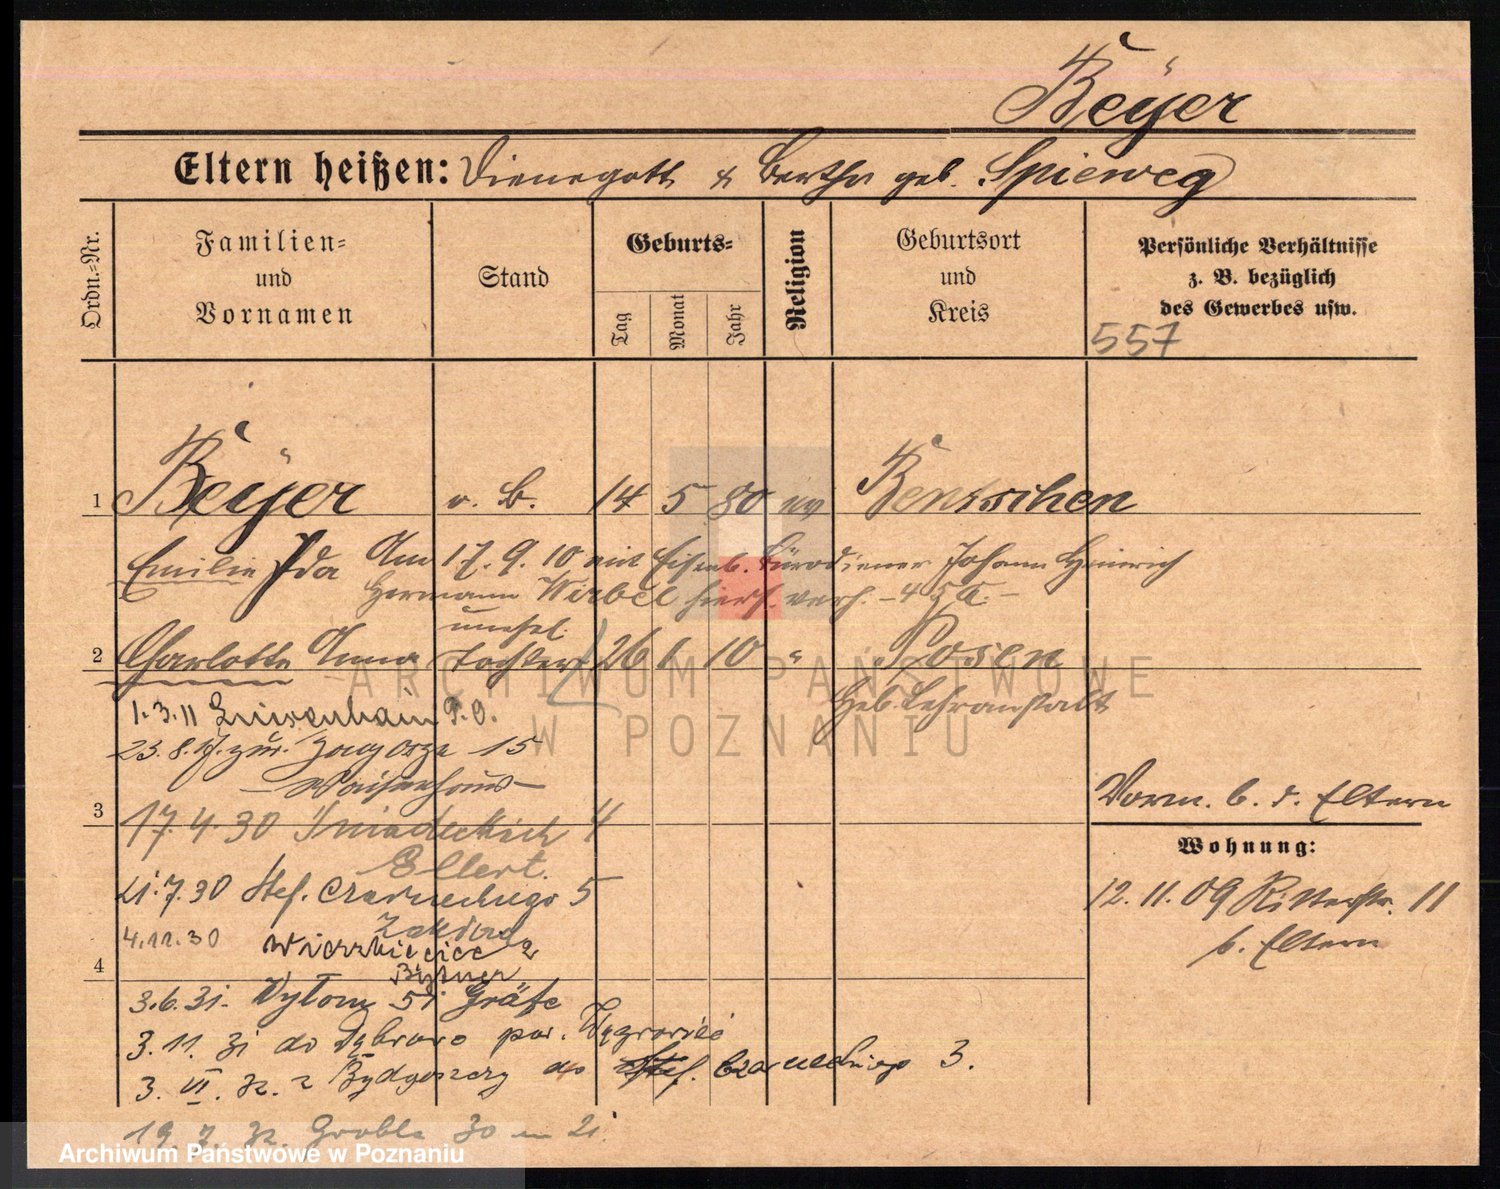 Beÿer
Eltern heißen: Dienegott & Bertha geb. Spieweg
Ordn.=Nr.
Familien=
und
Vornamen
Stand
Geburts=
Tag
Monat
Jahr
Religion
Geburtsort
und
Kreis
Persönliche Verhältnisse
z. B. bezüglich
des Gewerbes usw.
557
1 Beÿer v. B. 14 5 80 ev Bentschen
Emilie Ida Am 17. 9. 10 mit Eisenb. Bürodiener Johann Heinrich
Hermann Wirbel hiers. verh.
unehel.
2 Charlotte Anna Tochter 26 1 10 " Posen
Heb. Lehranstalt
1.3.11 P.O.
23.8.17. zur. Zagorze 15
Waisenhaus
Vorm. b. d. Eltern
3
17.4.30 Sniadeckich 4
Ellert.
Wohnung:
21.7.30 Stef. Czarneckiego 5
12. 11. 09 Ritterstr. 11
4.11.30 Wierzbiecice 2
b. Eltern
4
3.6.31. Gräfe
3.11.31 do Dąbrowo pow. Wągrowiec
3. VI. 32. z Bydgoszczy do Stef. Czarneckiego 3.
19.7.32. Grobla 30 m 21.
ARCHIWUM PAŃSTWOWE
W POZNANIU
Archiwum Państwowe w Poznaniu